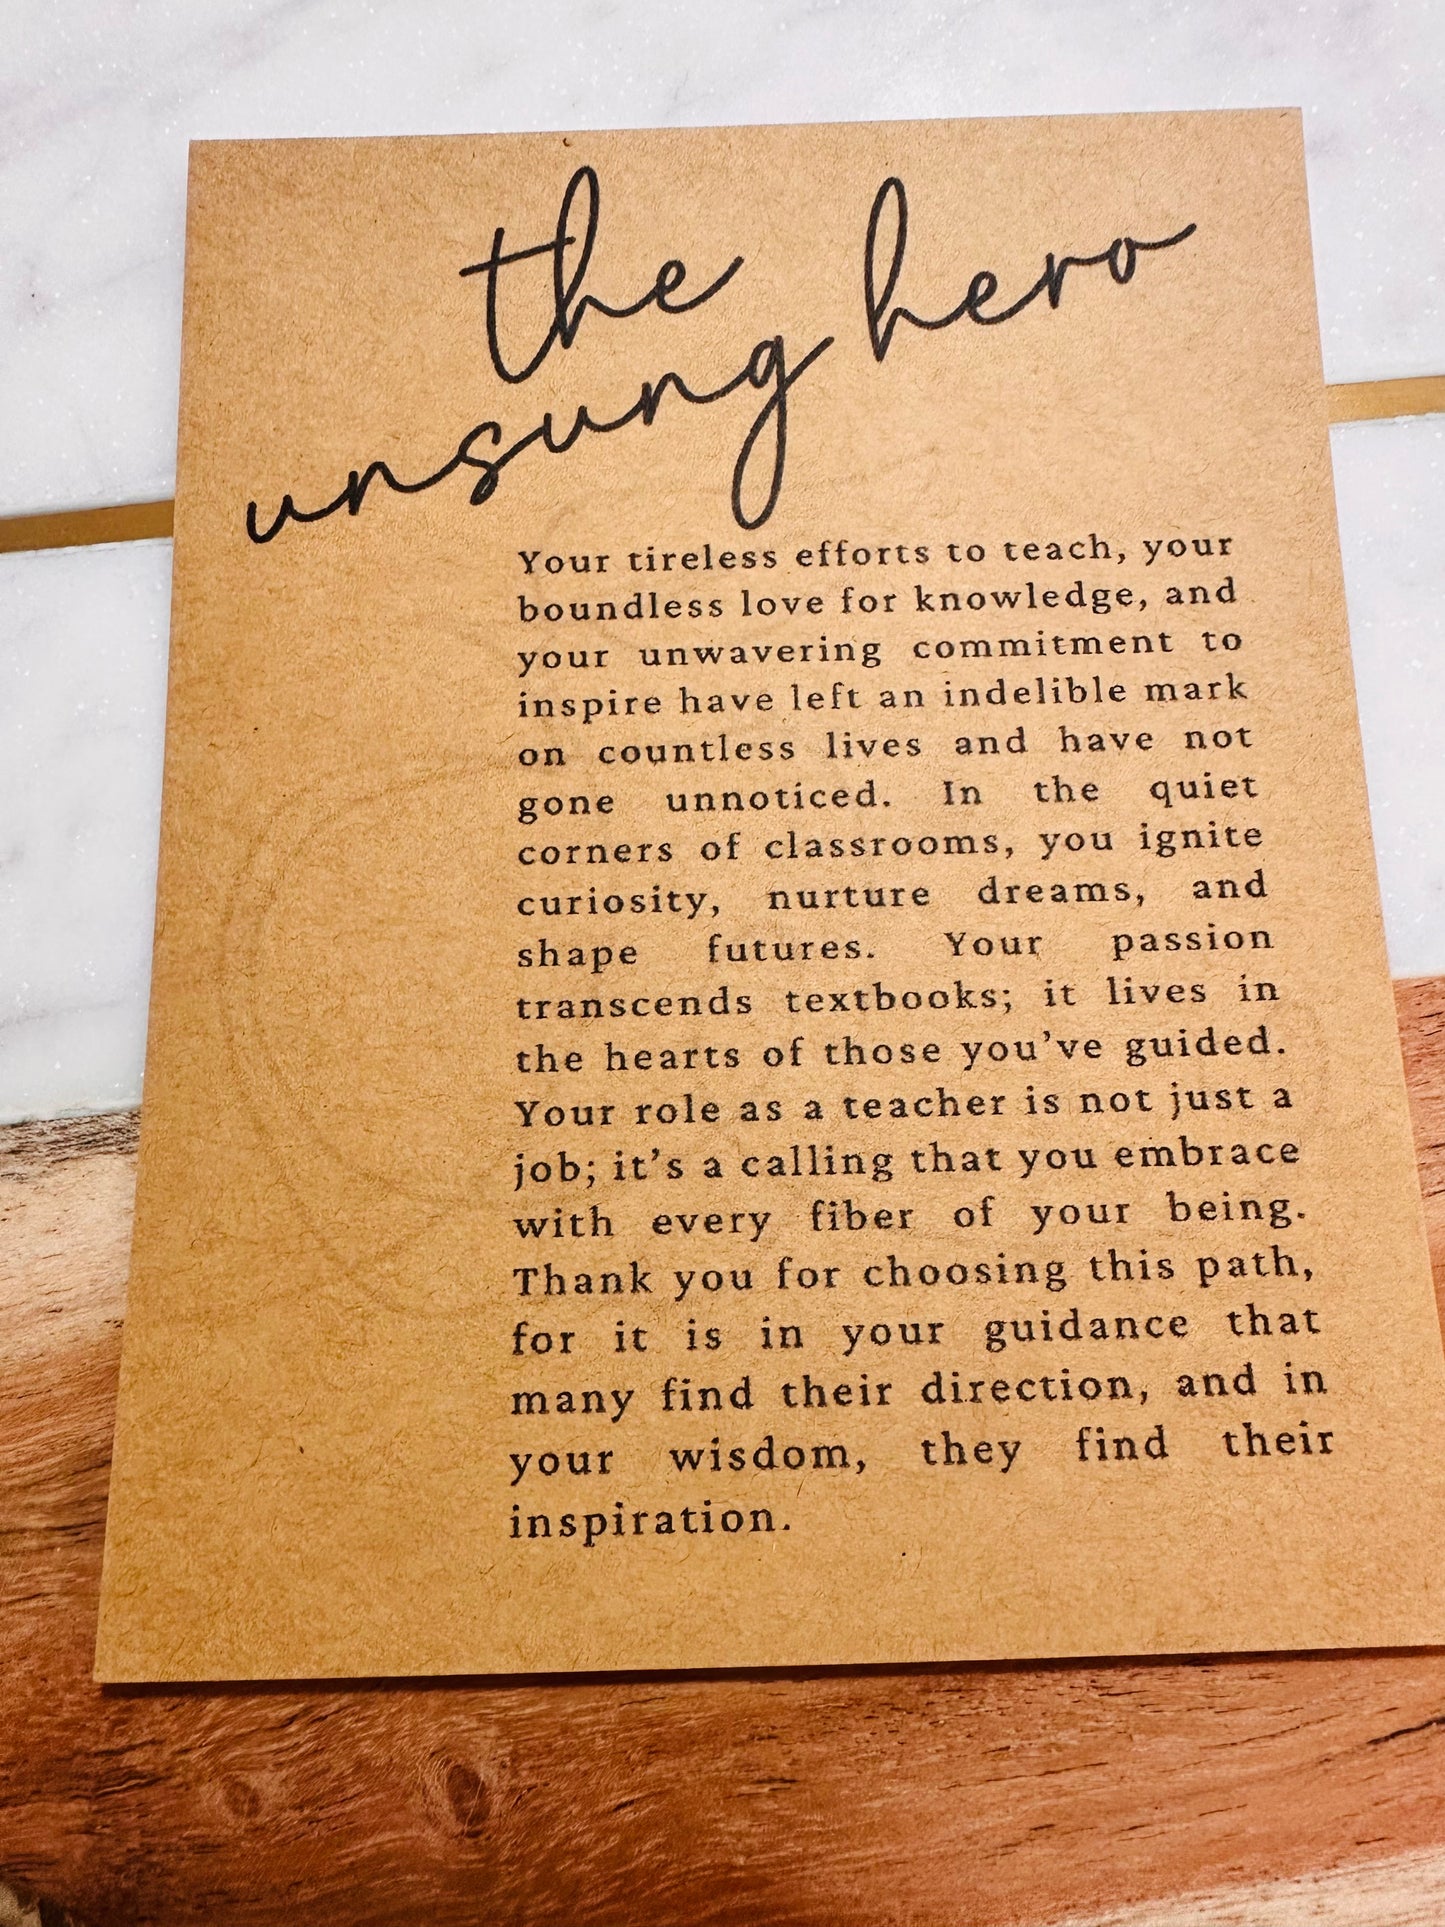 the
unsung hero
Your tireless efforts to teach, your
boundless love for knowledge, and
your unwavering commitment to
inspire have left an indelible mark
on countless lives and have not
gone unnoticed. In the quiet
corners of classrooms, you ignite
curiosity, nurture dreams, and
shape futures. Your passion
transcends textbooks; it lives in
the hearts of those you’ve guided.
Your role as a teacher is not just a
job; it’s a calling that you embrace
with every fiber of your being.
Thank you for choosing this path,
for it is in your guidance that
many find their direction, and in
your wisdom, they find their
inspiration.